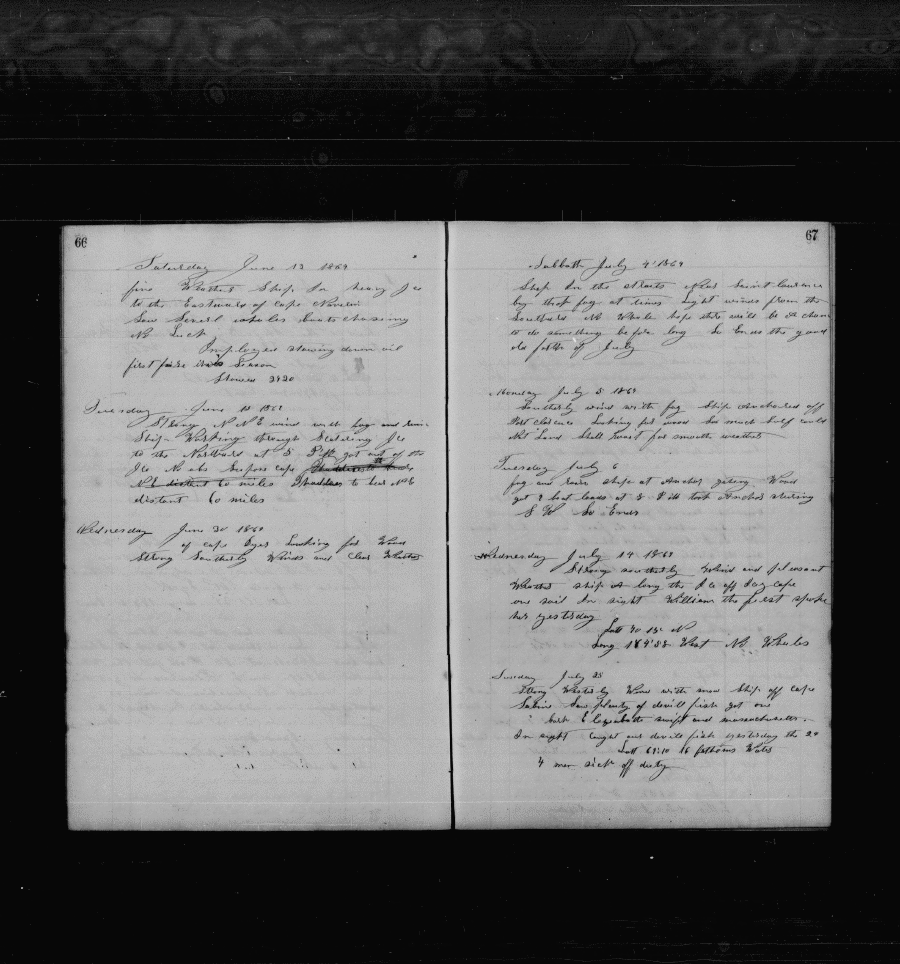 66
Saturday June 13 1869
fine Weather Ship In heavy Ice
to the Eastward of Cape
Saw whales boats chasing
No Luck
Employed stowing down oil
first this Season
Stowed 2920
Tuesday June 15 1869
Strong N N E wind with fog and rain
Ship Working through Scatering Ice
to the Northard at 5 P M got out of the
Ice No obs Supose cape
N E distant 60 miles to bear N E
distant 60 miles
Wednesday June 30 1869
of Cape Looking for Wood
Strong Southerly Winds and Clear Weather
67
Sabbath July 4 1869
Ship In the straits Near Saint Laurence
by thick fog at times Light winds from the
Southard No Whale hope there will be a chance
to do something before long So Ends the good
old forth of July
Monday July 5 1869
Southerly wind with fog Ship Anchored off
Port Clarence Looking for wood So much Surf could
Not Land Shall wait for smooth weather
Tuesday July 6
fog and rain ship at Anchor geting Wood
got 2 boat loads at 8 P M took Anchor stering
S W So Ends
Wednesday July 14 1869
Strong southerly Wind and pleasant
Weather ship A long the Ice off Icy Cape
one sail In sight William the first spoke
her yesterday
Latt 70 15 N
Long West No Whales
Tuesday July
Strong Westerly Wind with snow Ship off Cape
Sabine Saw plenty of devill fish got one
bark Elizabeth swift and massachusetts
In sight Caught our devile fish yesterday the 20
Latt 69:10 16 fathoms Water
4 men sick off duty